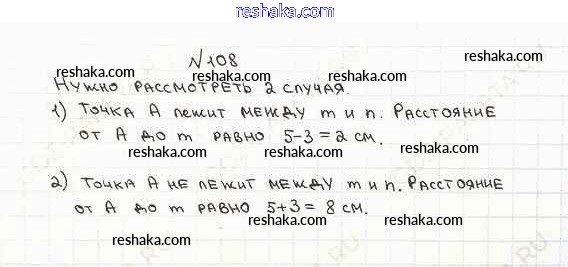 reshaka.com
№108
reshaka.com reshaka.com
Нужно рассмотреть 2 случая.
reshaka.com reshaka.com
1) Точка А лежит между m и n. Расстояние
от А до m равно 5-3=2 см.
reshaka.com reshaka.com
2) Точка А не лежит между m и n. Расстояние
reshaka.com reshaka.com
от А до m равно 5+3=8 см.
reshaka.com reshaka.com
reshaka.com